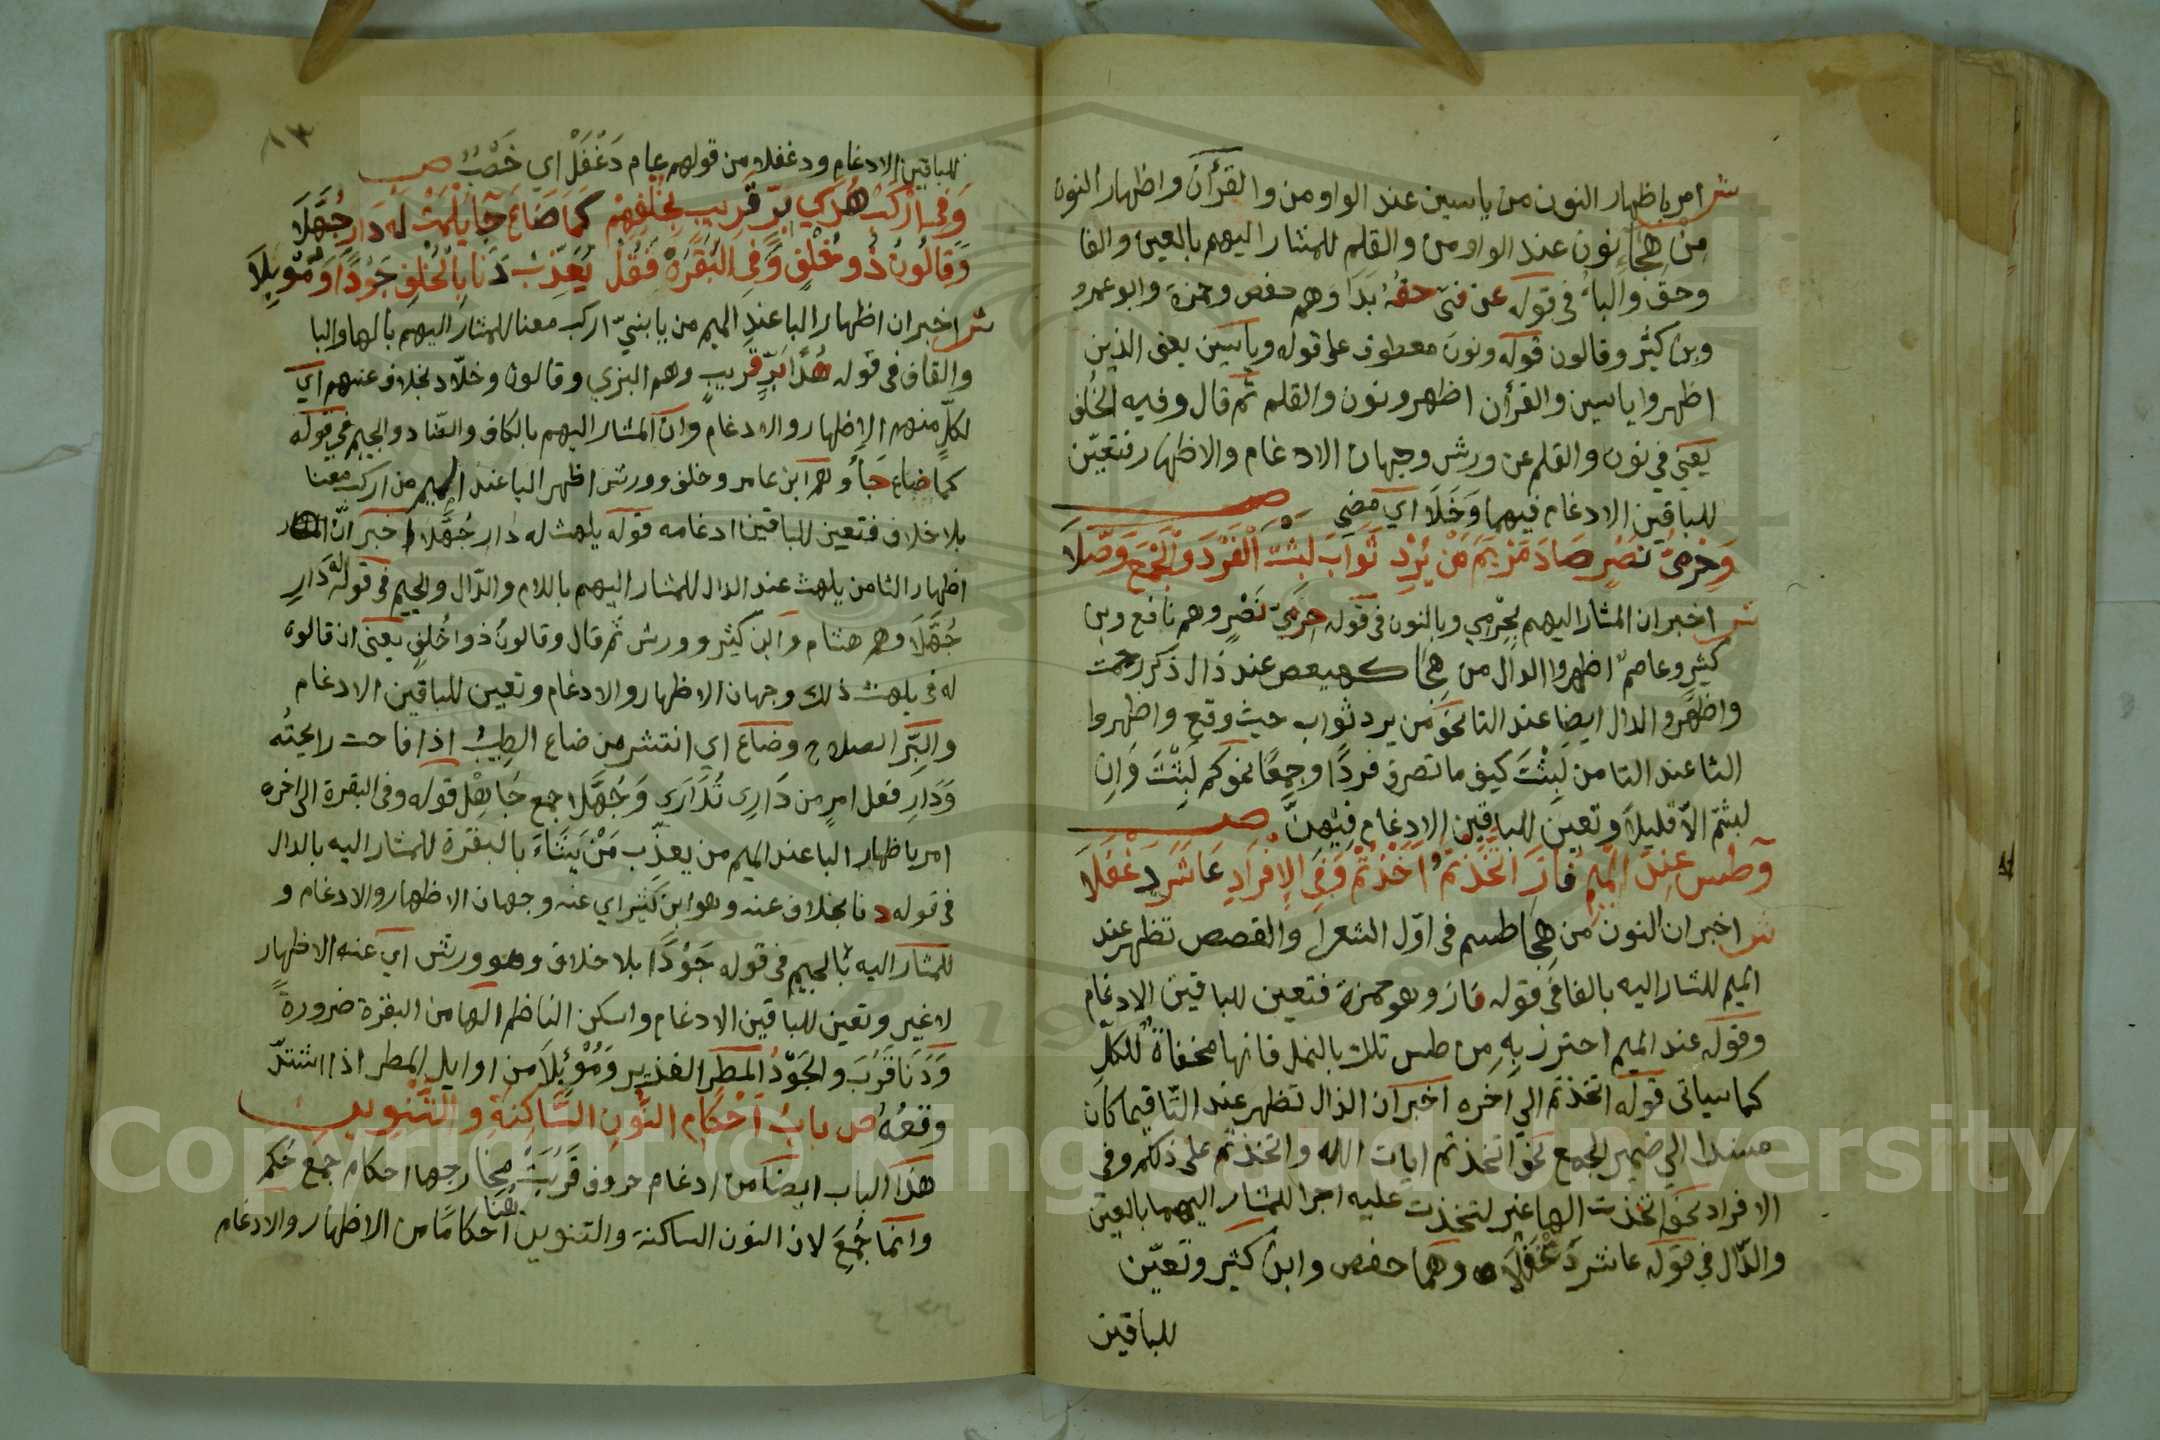 ش امر باظهار النون من ياسين عند الواو من والقرأن واظهار النون
من هجاء نون عند الواو من والقلم للمشار اليهم بالعين والفا
وحق والباء في قوله عن فتى حقه بدا وهم حفص وحمزة وابو عمرو
وبن كثير وقالون قوله ونون معطوف على قوله وياسين يعنى الذين
اظهروا ياسين والقرأن اظهرو نون والقلم ثم قال وفيه الخلف
يعني في نون والقلم عن ورش وجهان الادغام والاظهار فتعيّن
للباقين الادغام فيهما وَخَلَا اي مضي ص
وَحِرْمِىُّ نَصْرٍ صَادَ مَرْيَمَ مَنْ يُرِدْ ثَوَابَ لَبِثْتَ الْفَرْدَ وَالْجَمْعَ وَصَّلَا
ش اخبر ان المشار اليهم بحِرْمِي وبالنون في قوله حِرْمِىّ نَصْرٍ وهم نافع وبن
كثير وعاصم اظهروا الدال من هجا كهيعص عند ذال ذكر رحمت
واظهَرو الدال ايضا عند الثا نحو من يرد ثواب حيث وقع واظهروا
الثا عند التا من لَبِثْتَ كيف ما تصرف فردًا وجمعًا نحو كم لَبِثْتَ وَاِن
لبثتم الّا قليلًا وتعين للباقين الادغام فيهنَّ ص
وَطس عِنْدَ الْمِيمِ فَازَ اتَّخَذْتُمُ و اَخَذْتُمْ وَفِى الاِفْرَادِ عَاشَرَ دَغْفَلَا
ش اخبر ان النون من هجا طسم فى اوّل الشعرا والقصص تظهر عند
الميم للمشار اليه بالفا فى قوله فاز وهو حمزة فتعين للباقين الادغام
وقوله عند الميم احترز بِهِ من طس تلك بالنمل فانها مخفاة للكلّ
كما سياتى قوله اتخذتم الي اخره اخبر ان الذال تظهر عند التّا فيما كان
مسندا الي ضمير الجمع نحو اتخذتم ايات الله واتخذتم على ذلكم وفى
الافراد نحو اتخذت الها غير لتخذت عليه اجرا للمشار اليهما بالعين
والدّال في قوله عاشر دَغْفَلَا وهما حفص وابن كثير وتعيّن
للباقين
٨٣
للباقين الادغام ودغفلا من قولهم عام دَغْفَلْ اي خَصْبٌ ص
وَفِى ارْكَبْ هُدَي بَرٍّ قَرِيبٍ بِخُلْفِهِمْ كَمَا ضَاعَ جَا يَلْهَثْ لَهُ دَارِ جُهَّلَا
وَقَالُونُ ذُو خُلْفٍ وَفِى الْبَقَرَهْ فَقُلْ يُعَذِّبْ دَنَا بِالْخُلْفِ جَوْدًا وَمُوْبِلَا
ش اخبر ان اظهار البا عند الميم من يا بنيّ اركب معنا للمشار اليهم بالها والبا
والقاف فى قوله هُدَا بَرٍّ قَرِيبٍ وهم البزي وقالون وخلّاد بخلاف عنهم اي
لكلٍّ منهم الاظهار والادغام وان المشار اليهم بالكاف والضاد والجيم في قوله
كما ضاع جا وهم ابن عامر وخلف وورش اظهر البا عند الميم من اركب معنا
بلا خلاف فتعين للباقين ادغامه قوله يلهث له دار جُهَّلَا اخبر ان
اظهار الثا من يلهث عند الذال للمشار اليهم باللام والدّال والجيم فى قوله لَهُ دَارِ
جُهَّلَا وهم هشام وابن كثير وورش ثم قال وقالونُ ذو اخُلفٍ يعنى ان قالون
له فى يلهث ذلك وجهان الاظهار والادغام وتعين للباقين الادغام
والبَرّ الصلاح وضَاعَ اي انتشر من ضاع الطِيبُ اذا فاحت رايحتُه
وَدَارِ فعل امرٍ من دَارِى تُدَارَى وَجُهَّلا جمع جَاهِل قوله وفى البقرة الى اخره
امر باظهار البا عند الميم من يعذِّب مَنْ يَشَاءَ بالبقرة للمشار اليه بالدال
فى قوله دنا بخلاف عنه وهو ابن كثير اي عنه وجهان الاظهار والادغام و
للمشار اليه بالجيم فى قوله جَوْدًا بلا خلاف وهو ورش اي عنه الاظهار
لا غير وتعين للباقين الادغام واسكن الناظم الها من البقرة ضرورةً
وَدَنَا قَرُبَ والجَوْدُ المَطَر الغزير وَمُوْبِلًا من اوايل المطر اذا اشتدّ
وقعُهُ ص بابُ اَحْكَامِ النُّونِ السَّاكِنَةِ وَالتَّنْوِينِ
هذا الباب ايضا من ادغام حروف قَرُبَتْ مخارجها احكام جمع حُكم
وانما جُمِعَ لان النون الساكنة والتنوين هُنا احكامًا من الاظهار والادغام
Copyright © King Saud University